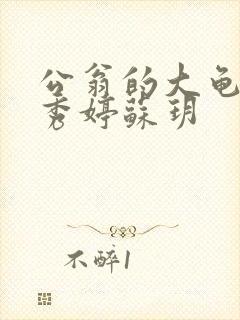 公翁的大龟
秀婷蘇玥
不醉1